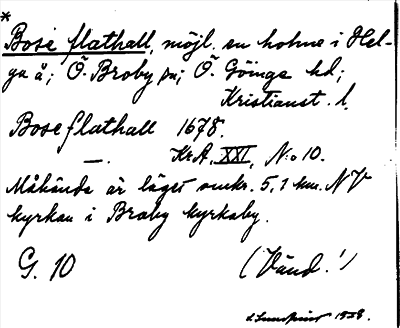 *
Bose flathall, möjl. en holme i Hel-
ge å; Ö. Broby sn; Ö. Göinge hd;
Kristianst. l.
Boseflathall 1678.
—. KrA, XXI, N:o 10.
Måhända är läget omkr. 5,1 km. NV
kyrkan i Broby kyrkoby.
G. 10 (Vänd!)
1928.